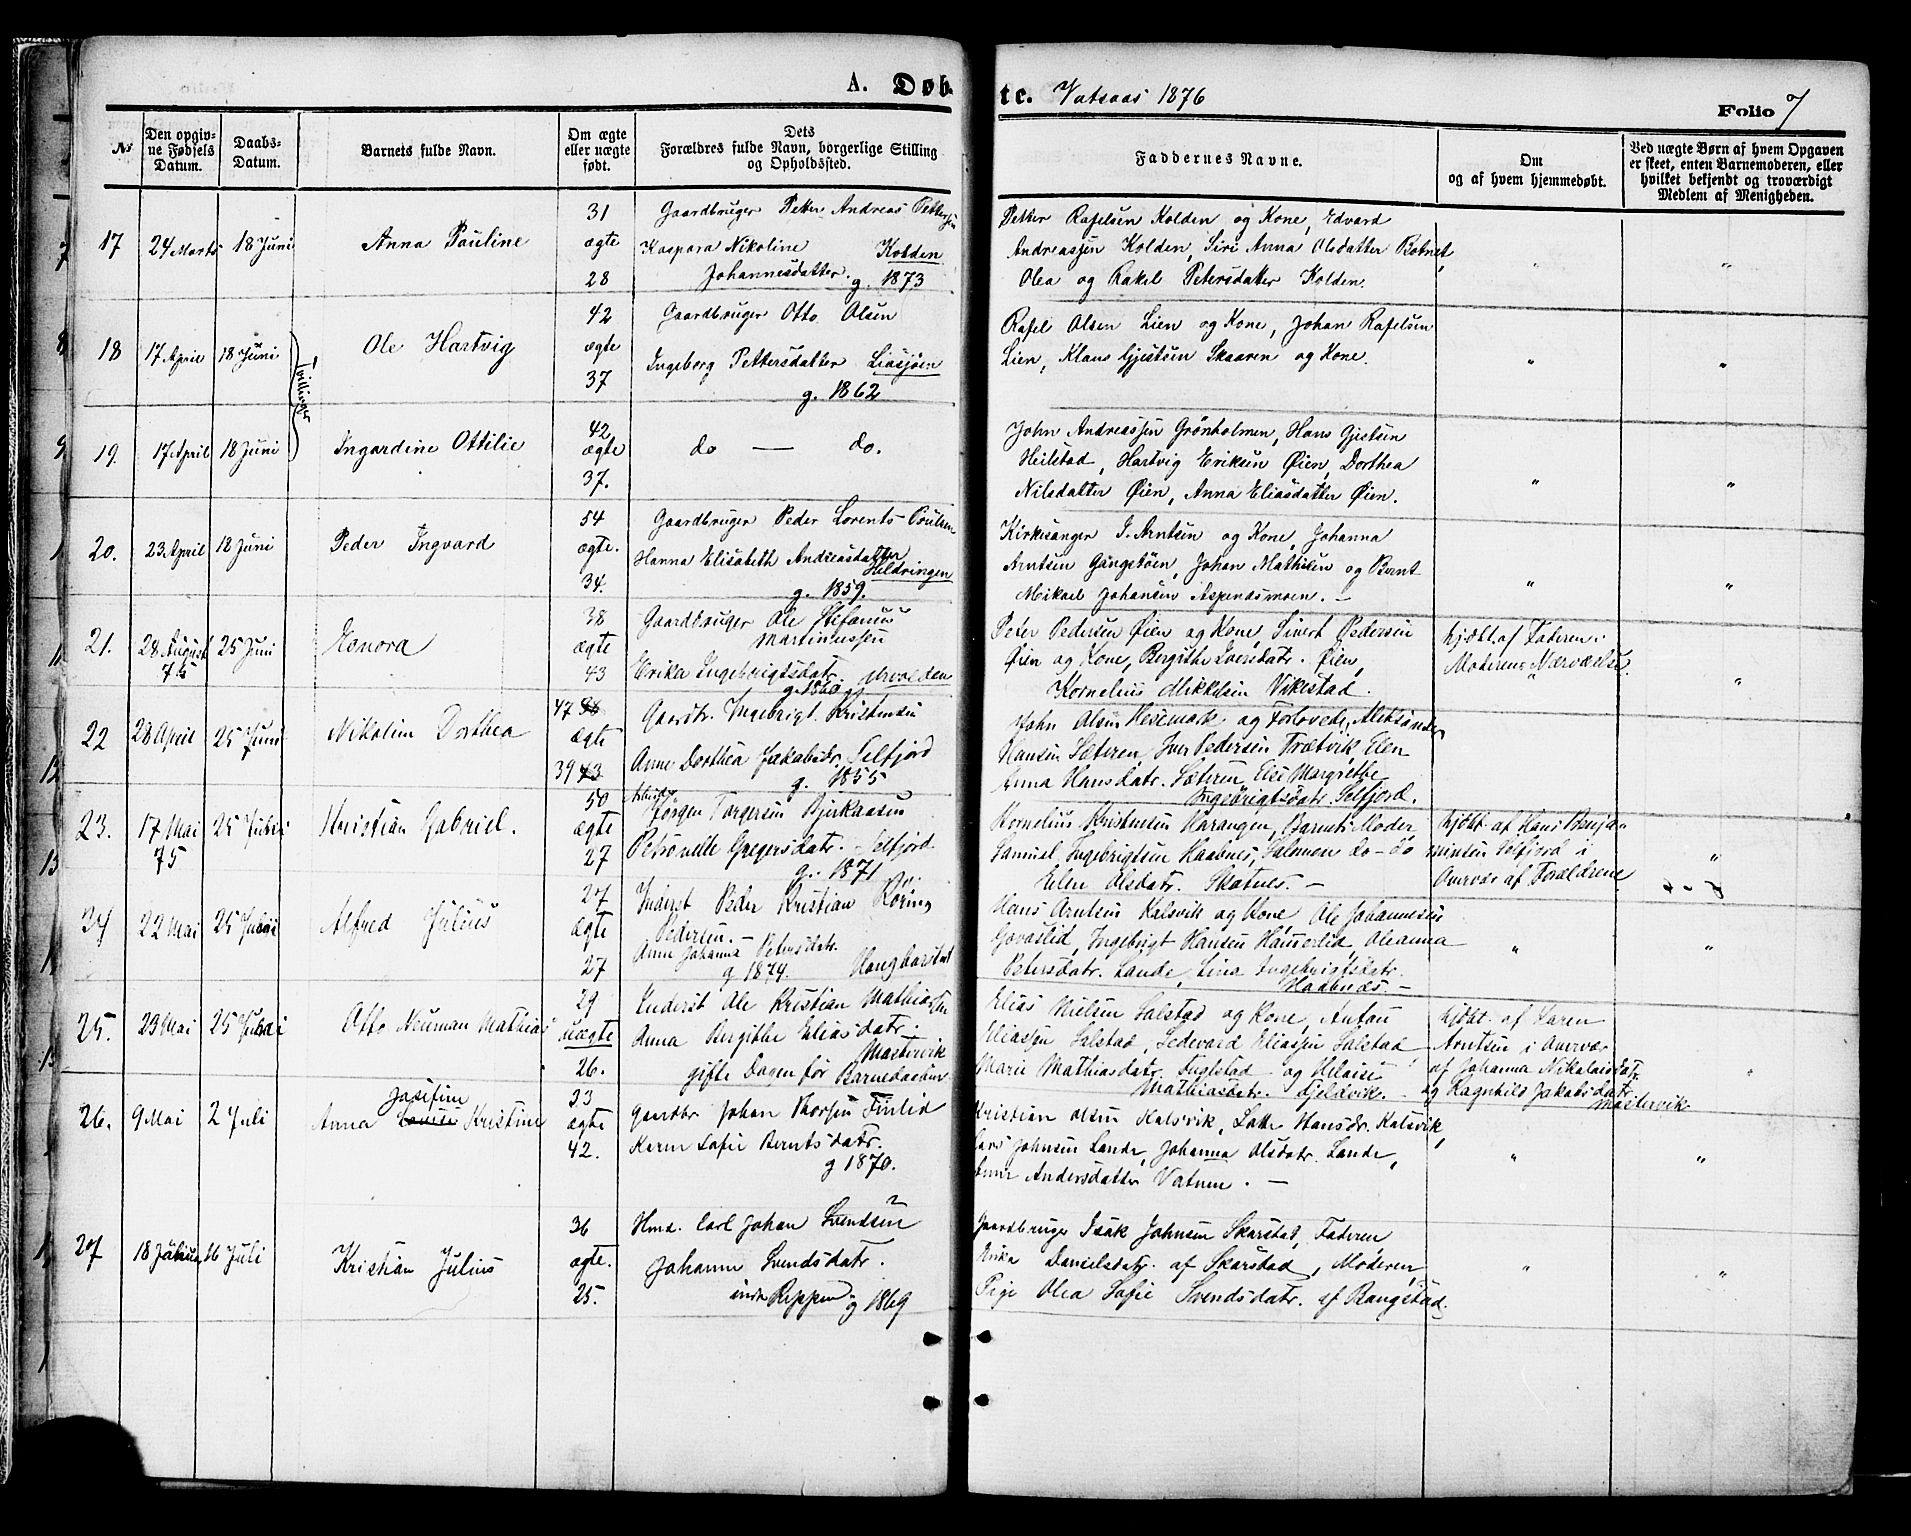 A. Døb-
te. Vatsaas 1876
Folio 7
No
Den opgiv-
ne Fødsels
Datum.
Daabs-
Datum.
Barnets fulde Navn.
Om ægte
eller uægte
født.
Dets
Forældres fulde Navn, borgerlige Stilling
og Opholdssted.
Faddernes Navne.
Om
og af hvem hjemmedøbt.
Ved uægte Børn af hvem Opgaven
er skeet, enten Barnemoderen, eller
hvilket bekjendt og troværdigt
Medlem af Menigheden.
17 24 Marts 18 Juni Anna Pauline
31
ægte
28
Gaardbruger Petter Andreas Pettersen
Kaspara Nikoline Kolden
Johannesdatter. g. 1873
Petter Rafelsen Kolden og Kone, Edvard
Andreassen Kolden, Siri Anna Olsdatter Botnet,
Olea og Rakel Petersdatter Kolden.
18 17 April 18 Juni Ole Hartvig
Tvillinger
42
ægte
37
Gaardbruger Otto Olsen
Ingeborg Pettersdatter Liasjøen
g. 1862
Rafel Olsen Lien og Kone, Johan Rafelsen
Lien, Klaus Gjertsen Skaaren og Kone.
19. 17 April 18 Juni Ingardine Ottilie
42
ægte
37.
do — do.
John Andreassen Grønholmen, Hans Gjertsen
Heilstad, Hartvig Eriksen Øien, Dorthea
Nilsdatter Øien, Anna Eliasdatter Øien.
20. 23 April 18 Juni Peder Ingvard
54
ægte.
34.
Gaardbruger Peder Lorents Poulsen
Hanna Elisabeth Andreasdatter
Heldringen
g. 1859.
Kirkesanger J. Arntsen og Kone, Johanna
Arntsen Gangstøen, Johan Mathisen og Bernt
Mikael Johansen Aspenesmoen. -
21. 28 August 25 Juni
75
38
ægte
43
Gaardbruger Ole Stefanus
Martinussen
Erika Ingebrigtsdatr.
g. 1860
Peter Pedersen Øien og Kone, Sivert Pedersen
Øien og Kone, Bergithe Iversdatr. Øien,
Kornelius Mikkelsen Vikestad.
hjdbt. af Faderen i
Moderens Nærværelse.
22 28 April 25 Juni Nikoline Dorthea
47
ægte
39 43
Gaardbr. Ingebrigt Kristensen
Anne Dorthea Jakobsdr. Selfjord
g. 1855
John Olsen Hesemark og Forlovede, Aleksander
Hansen Sæteren, Iver Pedersen Trætvik, Elen
Anna Hansdatr. Sæteren, Else Margrethe
Ingebrigtsdatr. Selfjord.
23. 17 Mai 25 Juni Kristian Gabriel.
75
50
ægte
27
Jørgen Torgersen Bjerkaasen
Petronelle Gregersdatr. Selfjord
g. 1871
Kornelius Kristensen Harangen, Barnets Moder
Samuel Ingebrigtsen Haabnes, Salomon do - do
Elen Olsdatr. Skatnes. -
hjdbt. af Hans Benja-
minsen Selfjord i
Overvær af Forældrene
24 22 Mai 25 Juni Alfred Julius
27
ægte
27
Inderst Peder Kristian Røring
Pedersen. -
Anne Johanna Petersdatr.
g 1874.
Hans Arntsen Kalsvik og Kone, Ole Johannesen
Govaslid, Ingebrigt Hansen Hamerlid, Oleanna
Petersdatr. Lande, Lina Ingebrigtsdatr.
Haabnes. -
25. 23 Mai 25 Juni Otto Neuman Mathias
29
uægte
26.
Inderst Ole Kristian Mathiassen
Anna Bergithe Eliasdatr.
Mastervik
gifte Dagen før Barnedaaben
Elias Nielsen Salstad og Kone, Antau
Eliassen Salstad, Sedevard Eliassen Salstad
Marie Mathiasdatr. Fuglstad og Heloise
Mathiasdatr. Fjeldvik. -
hjdbt. af Maren
Arntsen i Overvær
af Johanna Nikolaisdatr.
og Ragnhild Jakobsdatr.
Mastervik
26. 9 Mai 2 Juli Anna Josefine Louise Kristine
33
ægte
42.
Gaardbr Johan Thorsen Finlid
Karen Sofie Berntsdatr.
g 1870.
Kristian Olsen Kalsvik, Lotte Hansdr. Kalsvik,
Lars Johnsen Lande, Johanna Olsdatr. Lande,
Anne Andersdatter Vatnen. -
27 18 Januar 16 Juli Kristian Julius
36
ægte.
25.
Hmd. Carl Johan Svendsen
Johanne Svendsdatr.
indr. Reppen g 1869
Gaardbruger Isak Johnsen Skarstad, Faderen
Erika Danielsdatr. af Skarstad, Moderen
Pige Olea Sofie Svendsdatr. af Bangstad.